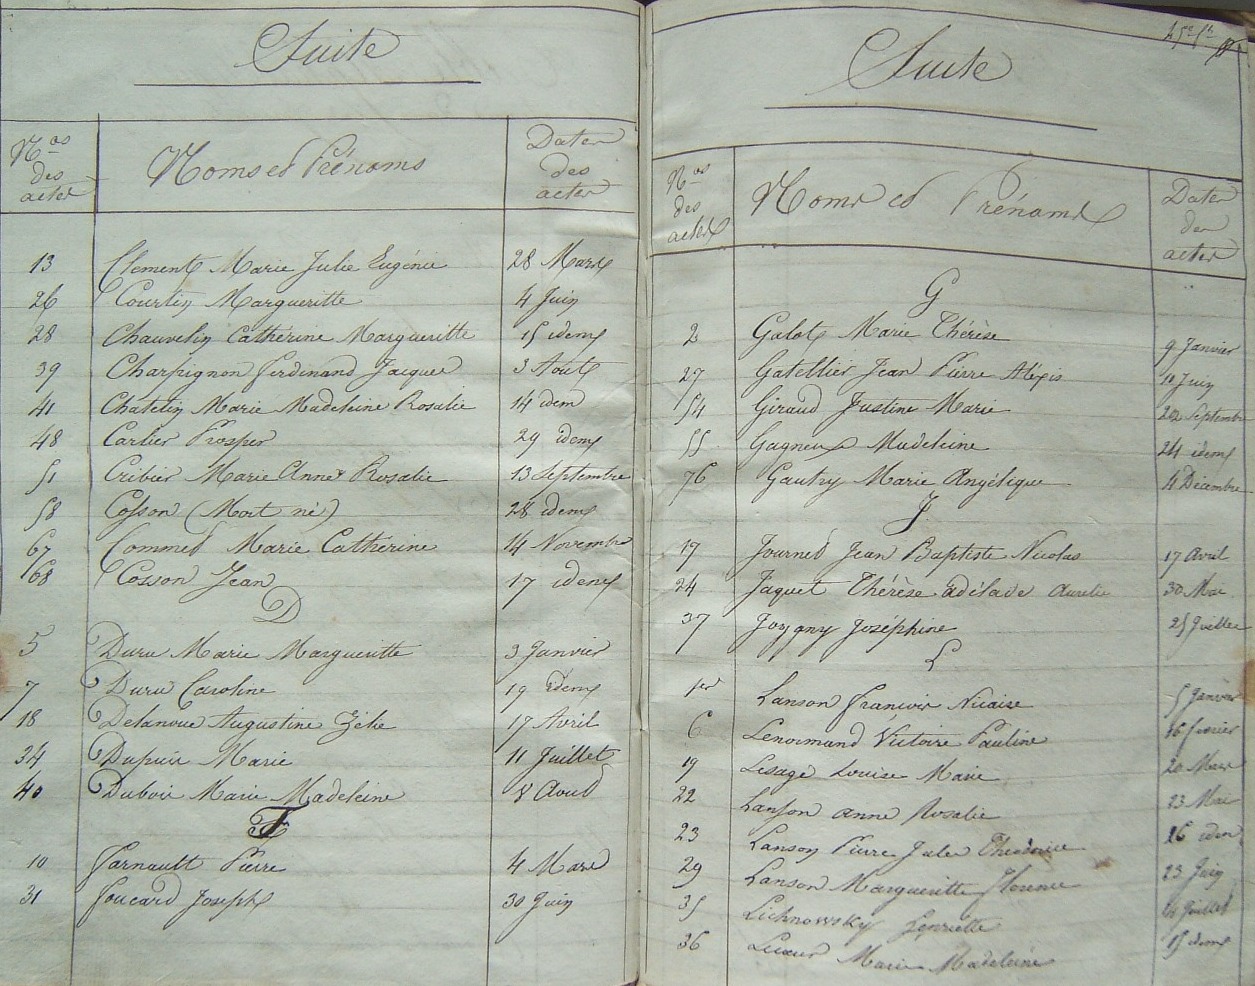 Suite
Nos des actes Noms et Prénoms Dates des actes
13 Clement Marie Julie Eugénie 28 Mars
26 Courtin Margueritte 4 Juin
28 Chauvelin Catherine Margueritte 15 idem
39 Charpignon Ferdinand Jacques 3 Aout
41 Chatelin Marie Madeleine Rosalie 14 idem
48 Carlier Prosper 29 idem
51 Cribier Marie Anne Rosalie 13 Septembre
58 Cosson (Mort né) 28 idem
67 Commes Marie Catherine 14 Novembre
68 Cosson Jean 17 idem
D
5 Duru Marie Margueritte 3 Janvier
7 Duru Caroline 19 idem
18 Delanoue Augustine Zélie 17 Avril
34 Dupuis Marie 11 Juillet
40 Dubois Marie Madeleine 8 Aout
F
10 Farnault Pierre 4 Mars
31 Foucard Joseph 30 Juin
Suite
Nos des actes Noms et Prénoms Dates des actes
G
2 Galot Marie Thérèse 9 Janvier
27 Gatellier Jean Pierre Aléxis 11 Juin
54 Giraud Justine Marie 20 Septembre
55 Gagneux Madeleine 24 idem
76 Gautry Marie Angélique 4 Décembre
J
17 Journed Jean Baptiste Nicolas 17 Avril
24 Jaquet Thérèse adélade Aurelie 30 Mai
37 Joygny Joséphine 25 Juillet
L
1er Lanson François Nicaise 5 Janvier
6 Lenormand Victoire Pauline 16 fevrier
19 Lesage Louise Marie 20 Mars
22 Lanson anne Rosalie 23 Mai
23 Lanson Pierre Jules Théodorice 26 idem
29 Lanson Margueritte Florence 23 Juin
35 Lichnowsky Henriette 14 Juillet
36 Lucas Marie Madeleine 15 idem